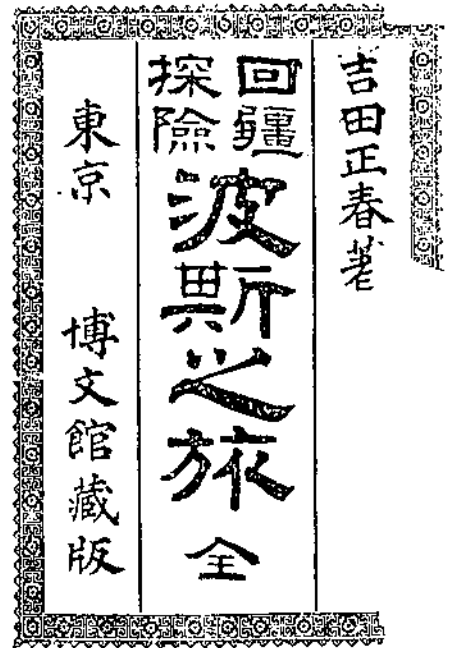 吉田正春著
回疆
探險
波斯之旅 全
東京 博文館藏版